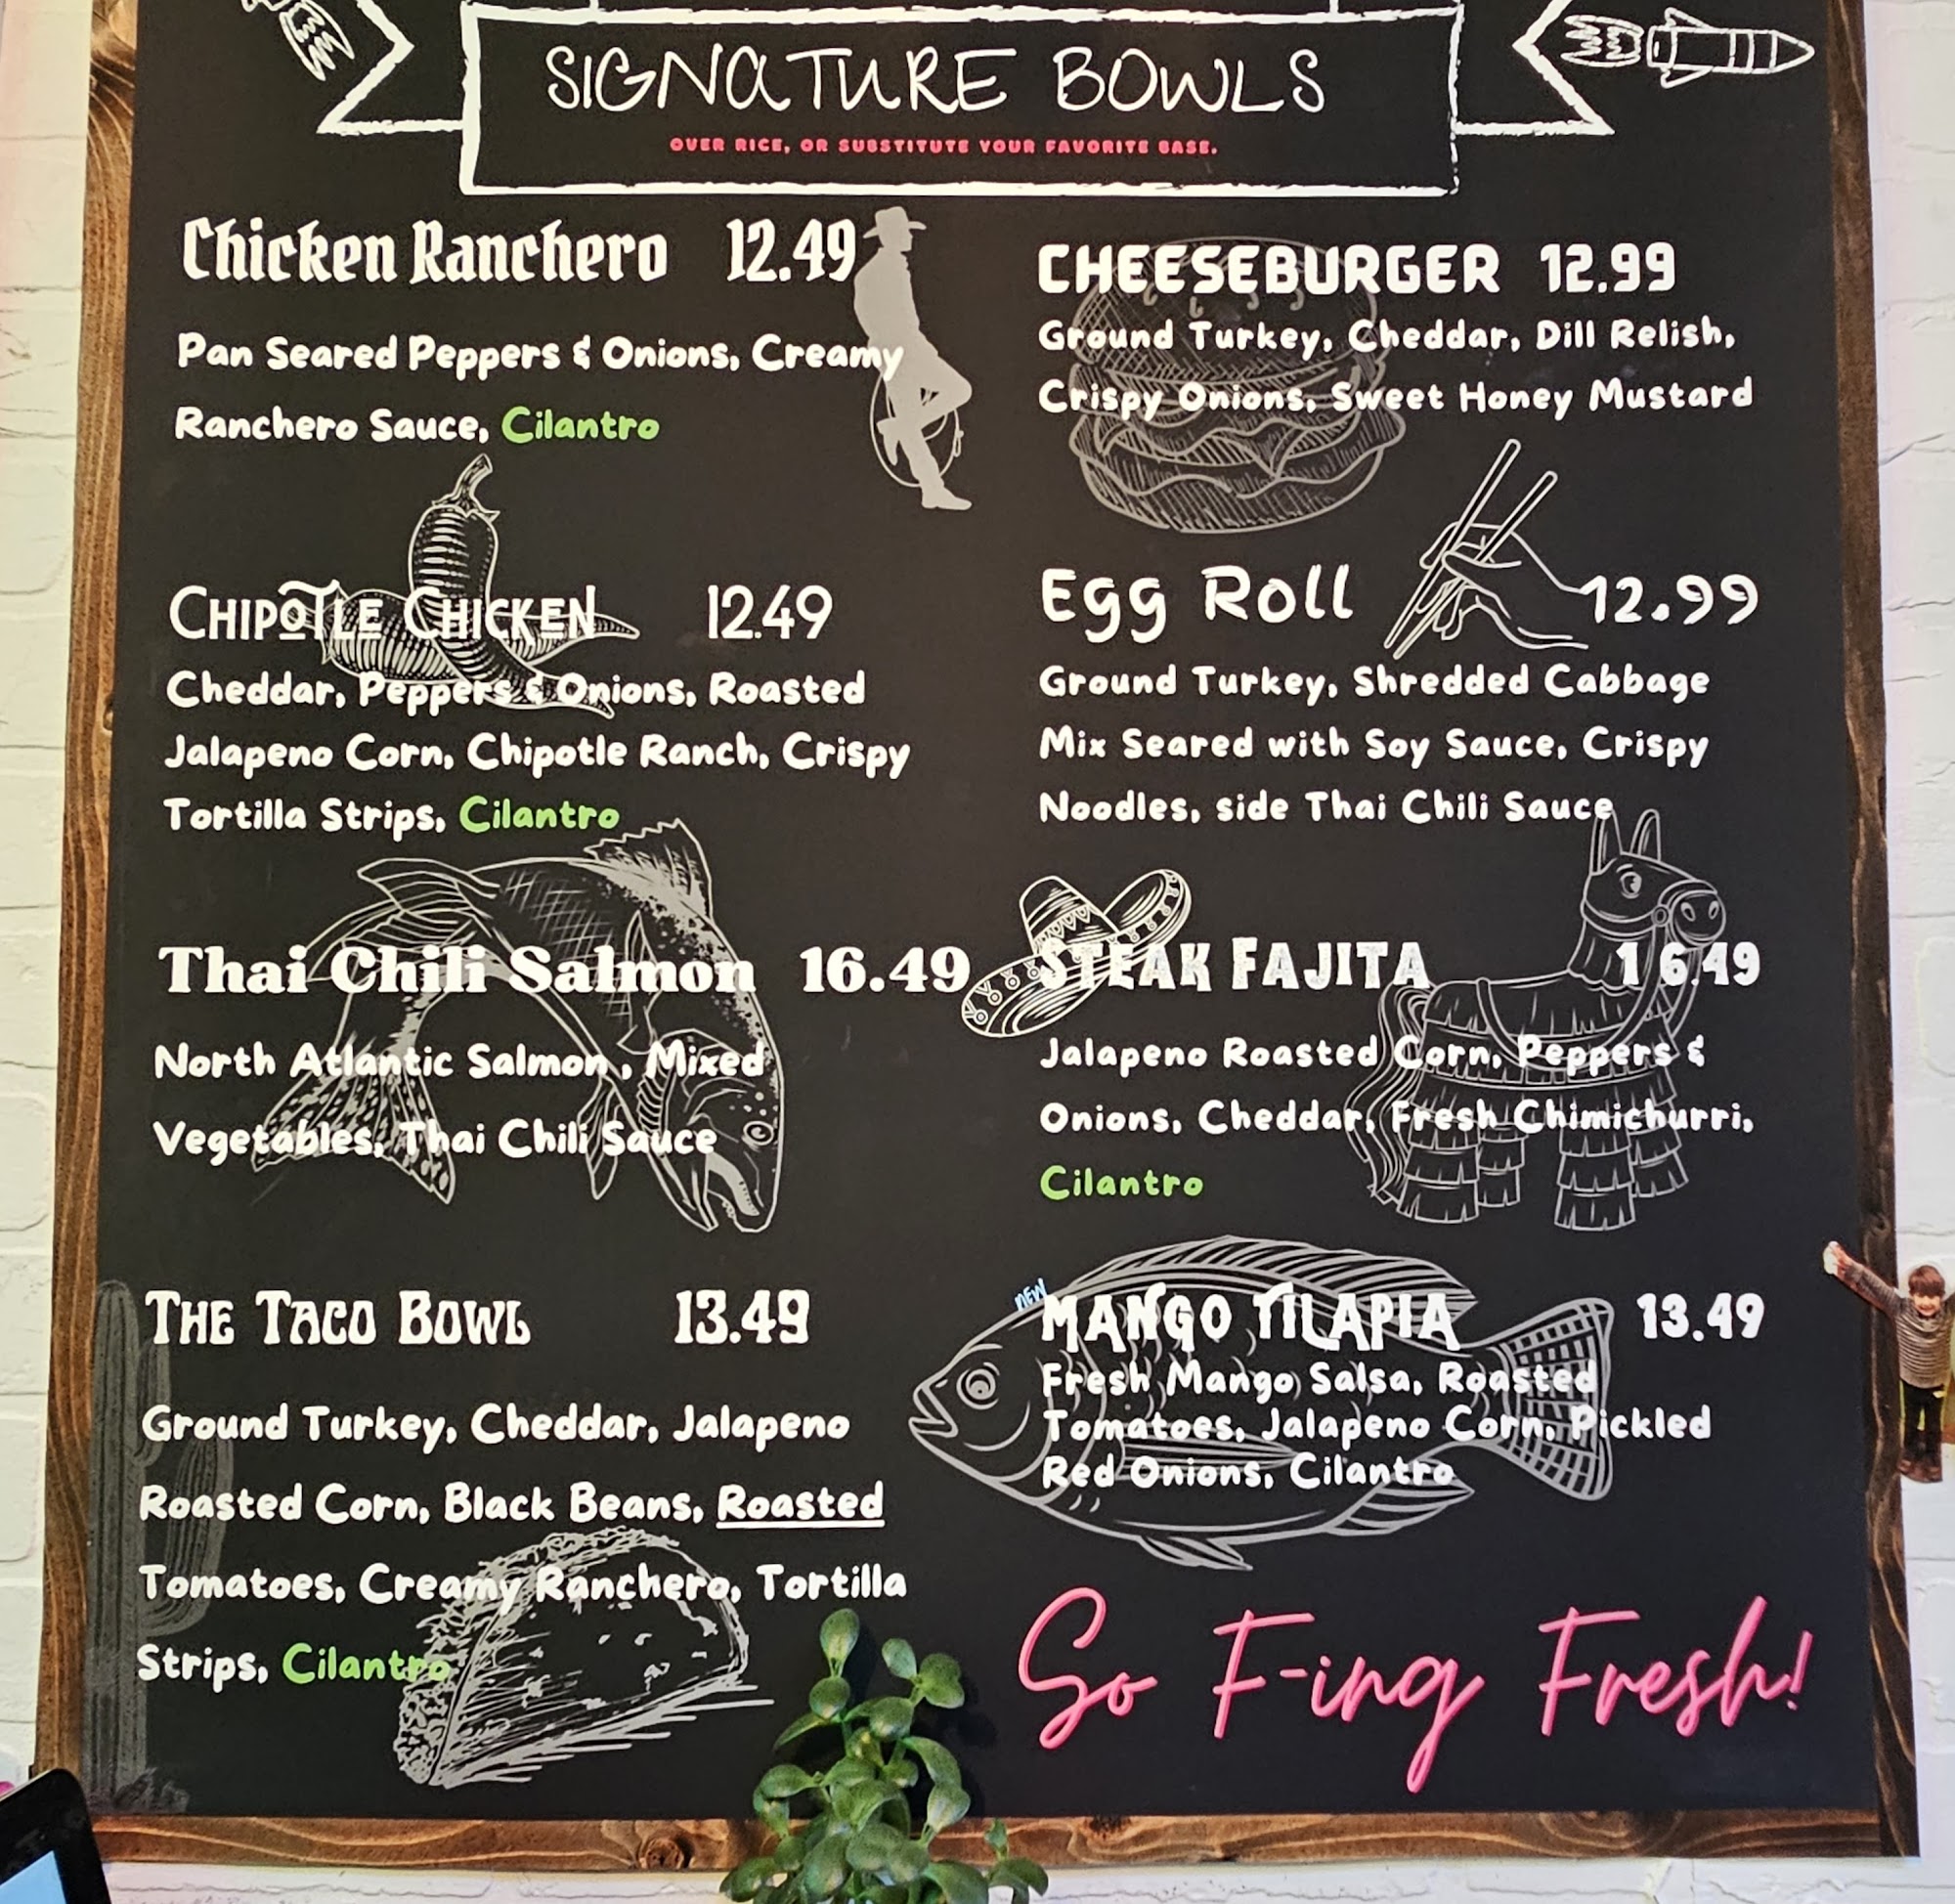 SIGNATURE BOWLS
OVER RICE, OR SUBSTITUTE YOUR FAVORITE BASE.
Chicken Ranchero 12.49
Pan Seared Peppers & Onions, Creamy
Ranchero Sauce, Cilantro
CHIPOTLE CHICKEN 12.49
Cheddar, Peppers & Onions, Roasted
Jalapeno Corn, Chipotle Ranch, Crispy
Tortilla Strips, Cilantro
Thai Chili Salmon 16.49
North Atlantic Salmon , Mixed
Vegetables, Thai Chili Sauce
THE TACO BOWL 13.49
Ground Turkey, Cheddar, Jalapeno
Roasted Corn, Black Beans, Roasted
Tomatoes, Creamy Ranchero, Tortilla
Strips, Cilantro
CHEESEBURGER 12.99
Ground Turkey, Cheddar, Dill Relish,
Crispy Onions, Sweet Honey Mustard
Egg Roll 12.99
Ground Turkey, Shredded Cabbage
Mix Seared with Soy Sauce, Crispy
Noodles, side Thai Chili Sauce
STEAK FAJITA 16.49
Jalapeno Roasted Corn, Peppers &
Onions, Cheddar, Fresh Chimichurri,
Cilantro
NEW
MANGO TILAPIA 13.49
Fresh Mango Salsa, Roasted
Tomatoes, Jalapeno Corn, Pickled
Red Onions, Cilantro
So F-ing Fresh!